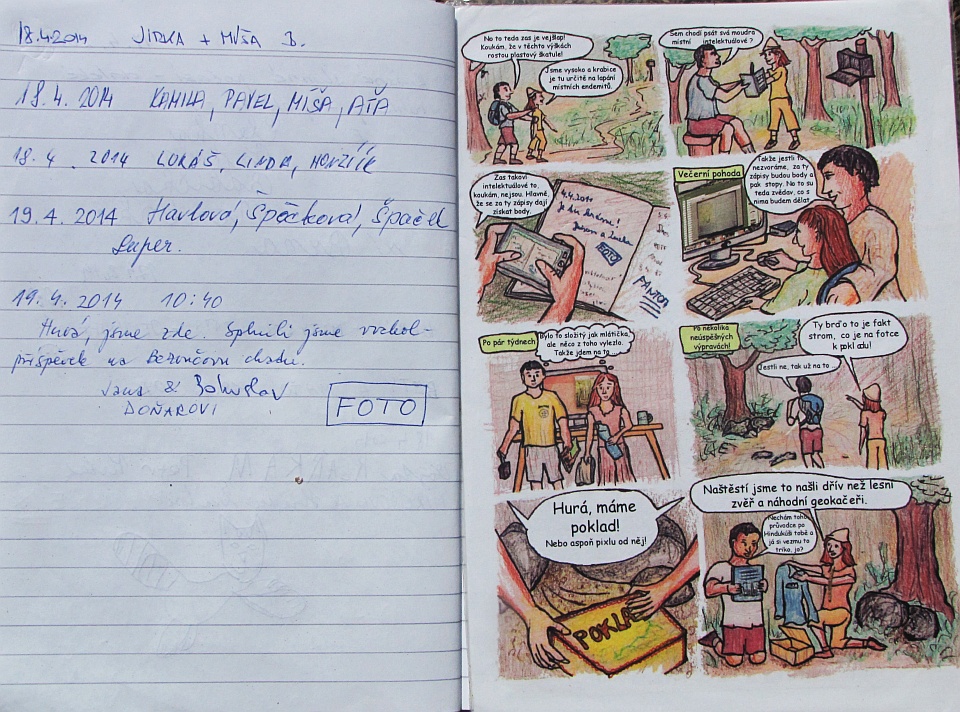 18.4.2014 JIRKA + MÍŠA B.
18.4. 2014 KAMILA, PAVEL, MÍŠA, AŤA
18.4. 2014 LUKÁŠ, LINDA,
19.4. 2014 Havlová, Špačková, Špaček
Super.
19.4. 2014 10:40
Hurá, jsme zde. Splnili jsme
příspěvek na
Jana & Bohuslav
DOŇAROVI
FOTO
No to teda zas je vejšlap!
Koukám, že v těchto výškách
rostou plastový škatule!
Jsme vysoko a krabice
je tu určitě na lapání
místních endemitů.
Sem chodí psát svá moudra
místní intelektuálové ?
Zas takoví
intelektuálové to,
koukám, nejsou. Hlavně,
že se za ty zápisy dají
získat body.
4.4.2014
FOTO
Večerní pohoda
Takže jestli to
nezvoráme, za ty
zápisy budou body a
pak stopy. No to su
teda zvědav, co s
nima budem dělat
Po pár týdnech
Bylo to složitý jak mlátička,
ale něco z toho vylezlo.
Takže jdem na to ...
Po několika
neúspěšných
výpravách!
Jestli ne, tak už na to ...
Ty brďo to je fakt
strom, co je na fotce
k pokladu!
Hurá, máme
poklad!
Nebo aspoň pixlu od něj!
POKLAD
Naštěstí jsme to našli dřív než lesní
zvěř a náhodní geokačeři.
Nechám toho
průvodce po
Hindúkúši tobě a
já si vezmu to
triko, jo?